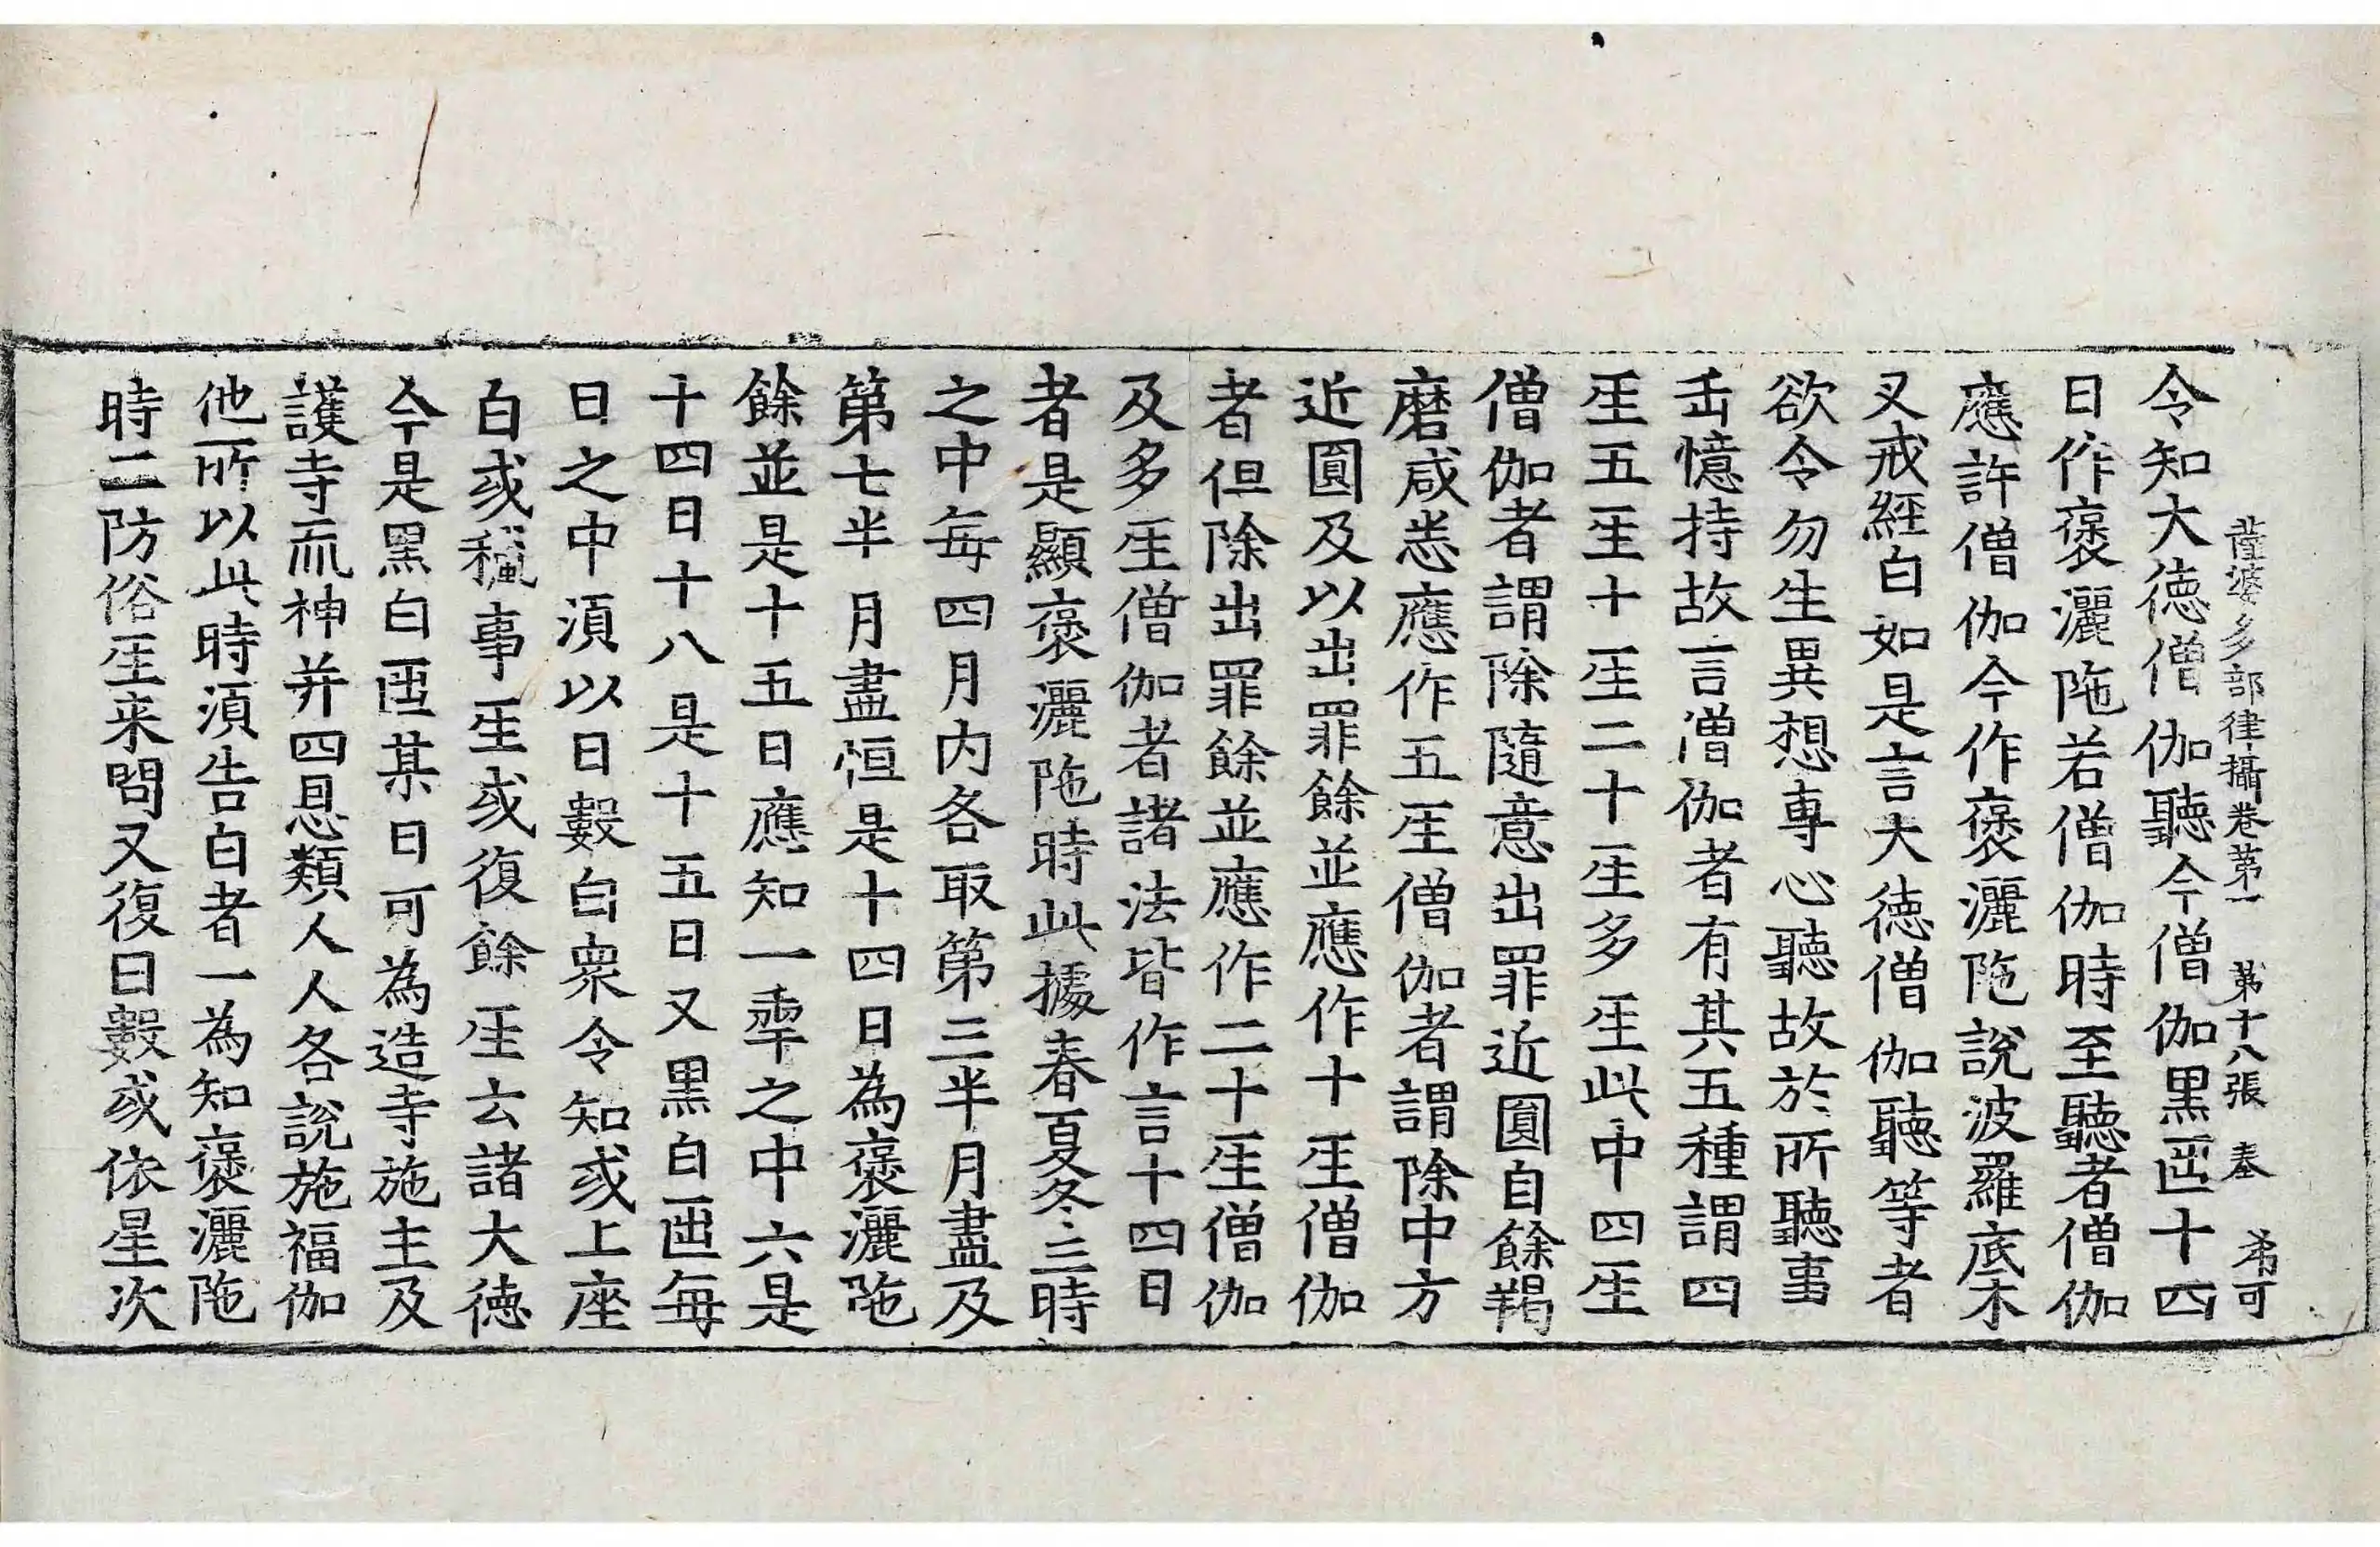 薩婆多部律攝卷第一　第十八張　奉　希可
令知大德僧伽聽今僧伽黑𠥱十四
日作褒灑陁若僧伽時至聽者僧伽
應許僧伽今作褒灑陁說波羅底木
叉戒經白如是言大德僧伽聽等者
欲令勿生異想專心聽故於所聽事
𠙺憶持故言僧伽者有其五種謂四
𤯔五𤯔十𤯔二十𤯔多𤯔此中四𤯔
僧伽者謂除隨意出罪近圓自餘羯
磨咸悉應作五𤯔僧伽者謂除中方
近圓及以出罪餘並應作十𤯔僧伽
者但除出罪餘並應作二十𤯔僧伽
及多𤯔僧伽者諸法皆作言十四日
者是顯褒灑陁時此據春夏冬三時
之中每四月内各取第三半月盡及
第七半月盡恒是十四日為褒灑陁
餘並是十五日應知一𠡦之中六是
十四日十八是十五日又黑白𠥱每
日之中湏以日數白衆令知或上座
白或穢事𤯔或復餘𤯔云諸大德
今是黑白𠥱某日可為造寺施主及
護寺而神并四恩類人人各說施福伽
他所以此時湏告白者一為知褒灑陁
時二防俗𤯔来問又復日數或依星次